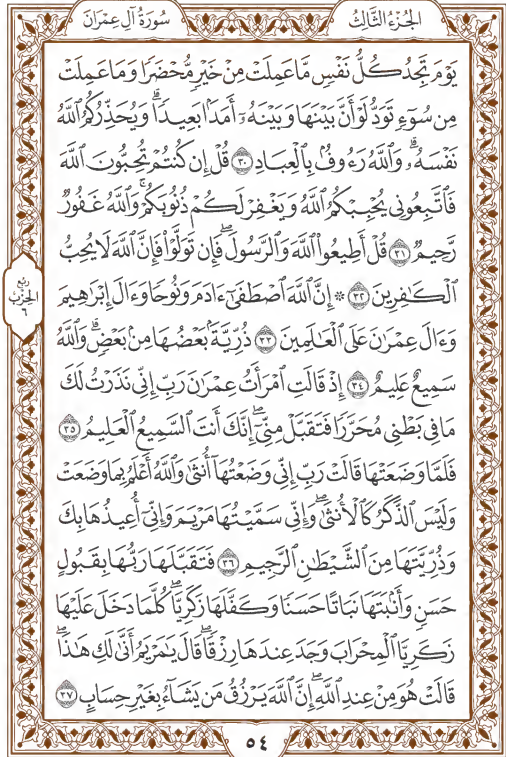 الجُزْءُ الثَّالِثُ
سُورَةُ آلِ عِمْرَانَ
يَوْمَ تَجِدُ كُلُّ نَفْسٍ مَّا عَمِلَتْ مِنْ خَيْرٍ مُّحْضَرًا وَمَا عَمِلَتْ
مِن سُوٓءٍ تَوَدُّ لَوْ أَنَّ بَيْنَهَا وَبَيْنَهُۥٓ أَمَدَۢا بَعِيدًاۗ وَيُحَذِّرُكُمُ ٱللَّهُ
نَفْسَهُۥۗ وَٱللَّهُ رَءُوفُۢ بِٱلْعِبَادِ ٣٠ قُلْ إِن كُنتُمْ تُحِبُّونَ ٱللَّهَ
فَٱتَّبِعُونِى يُحْبِبْكُمُ ٱللَّهُ وَيَغْفِرْ لَكُمْ ذُنُوبَكُمْۗ وَٱللَّهُ غَفُورٌ
رَّحِيمٌ ٣١ قُلْ أَطِيعُوا۟ ٱللَّهَ وَٱلرَّسُولَۖ فَإِن تَوَلَّوْا۟ فَإِنَّ ٱللَّهَ لَا يُحِبُّ
ٱلْكَٰفِرِينَ ٣٢ ۞ إِنَّ ٱللَّهَ ٱصْطَفَىٰٓ ءَادَمَ وَنُوحًا وَءَالَ إِبْرَٰهِيمَ
وَءَالَ عِمْرَٰنَ عَلَى ٱلْعَٰلَمِينَ ٣٣ ذُرِّيَّةَۢ بَعْضُهَا مِنۢ بَعْضٍۗ وَٱللَّهُ
سَمِيعٌ عَلِيمٌ ٣٤ إِذْ قَالَتِ ٱمْرَأَتُ عِمْرَٰنَ رَبِّ إِنِّى نَذَرْتُ لَكَ
مَا فِى بَطْنِى مُحَرَّرًا فَتَقَبَّلْ مِنِّىٓۖ إِنَّكَ أَنتَ ٱلسَّمِيعُ ٱلْعَلِيمُ ٣٥
فَلَمَّا وَضَعَتْهَا قَالَتْ رَبِّ إِنِّى وَضَعْتُهَآ أُنثَىٰ وَٱللَّهُ أَعْلَمُ بِمَا وَضَعَتْ
وَلَيْسَ ٱلذَّكَرُ كَٱلْأُنثَىٰۖ وَإِنِّى سَمَّيْتُهَا مَرْيَمَ وَإِنِّىٓ أُعِيذُهَا بِكَ
وَذُرِّيَّتَهَا مِنَ ٱلشَّيْطَٰنِ ٱلرَّجِيمِ ٣٦ فَتَقَبَّلَهَا رَبُّهَا بِقَبُولٍ
حَسَنٍ وَأَنۢبَتَهَا نَبَاتًا حَسَنًا وَكَفَّلَهَا زَكَرِيَّاۖ كُلَّمَا دَخَلَ عَلَيْهَا
زَكَرِيَّا ٱلْمِحْرَابَ وَجَدَ عِندَهَا رِزْقًاۖ قَالَ يَٰمَرْيَمُ أَنَّىٰ لَكِ هَٰذَاۖ
قَالَتْ هُوَ مِنْ عِندِ ٱللَّهِۖ إِنَّ ٱللَّهَ يَرْزُقُ مَن يَشَآءُ بِغَيْرِ حِسَابٍ ٣٧
رُبْع
الحِزْبُ
٦
٥٤